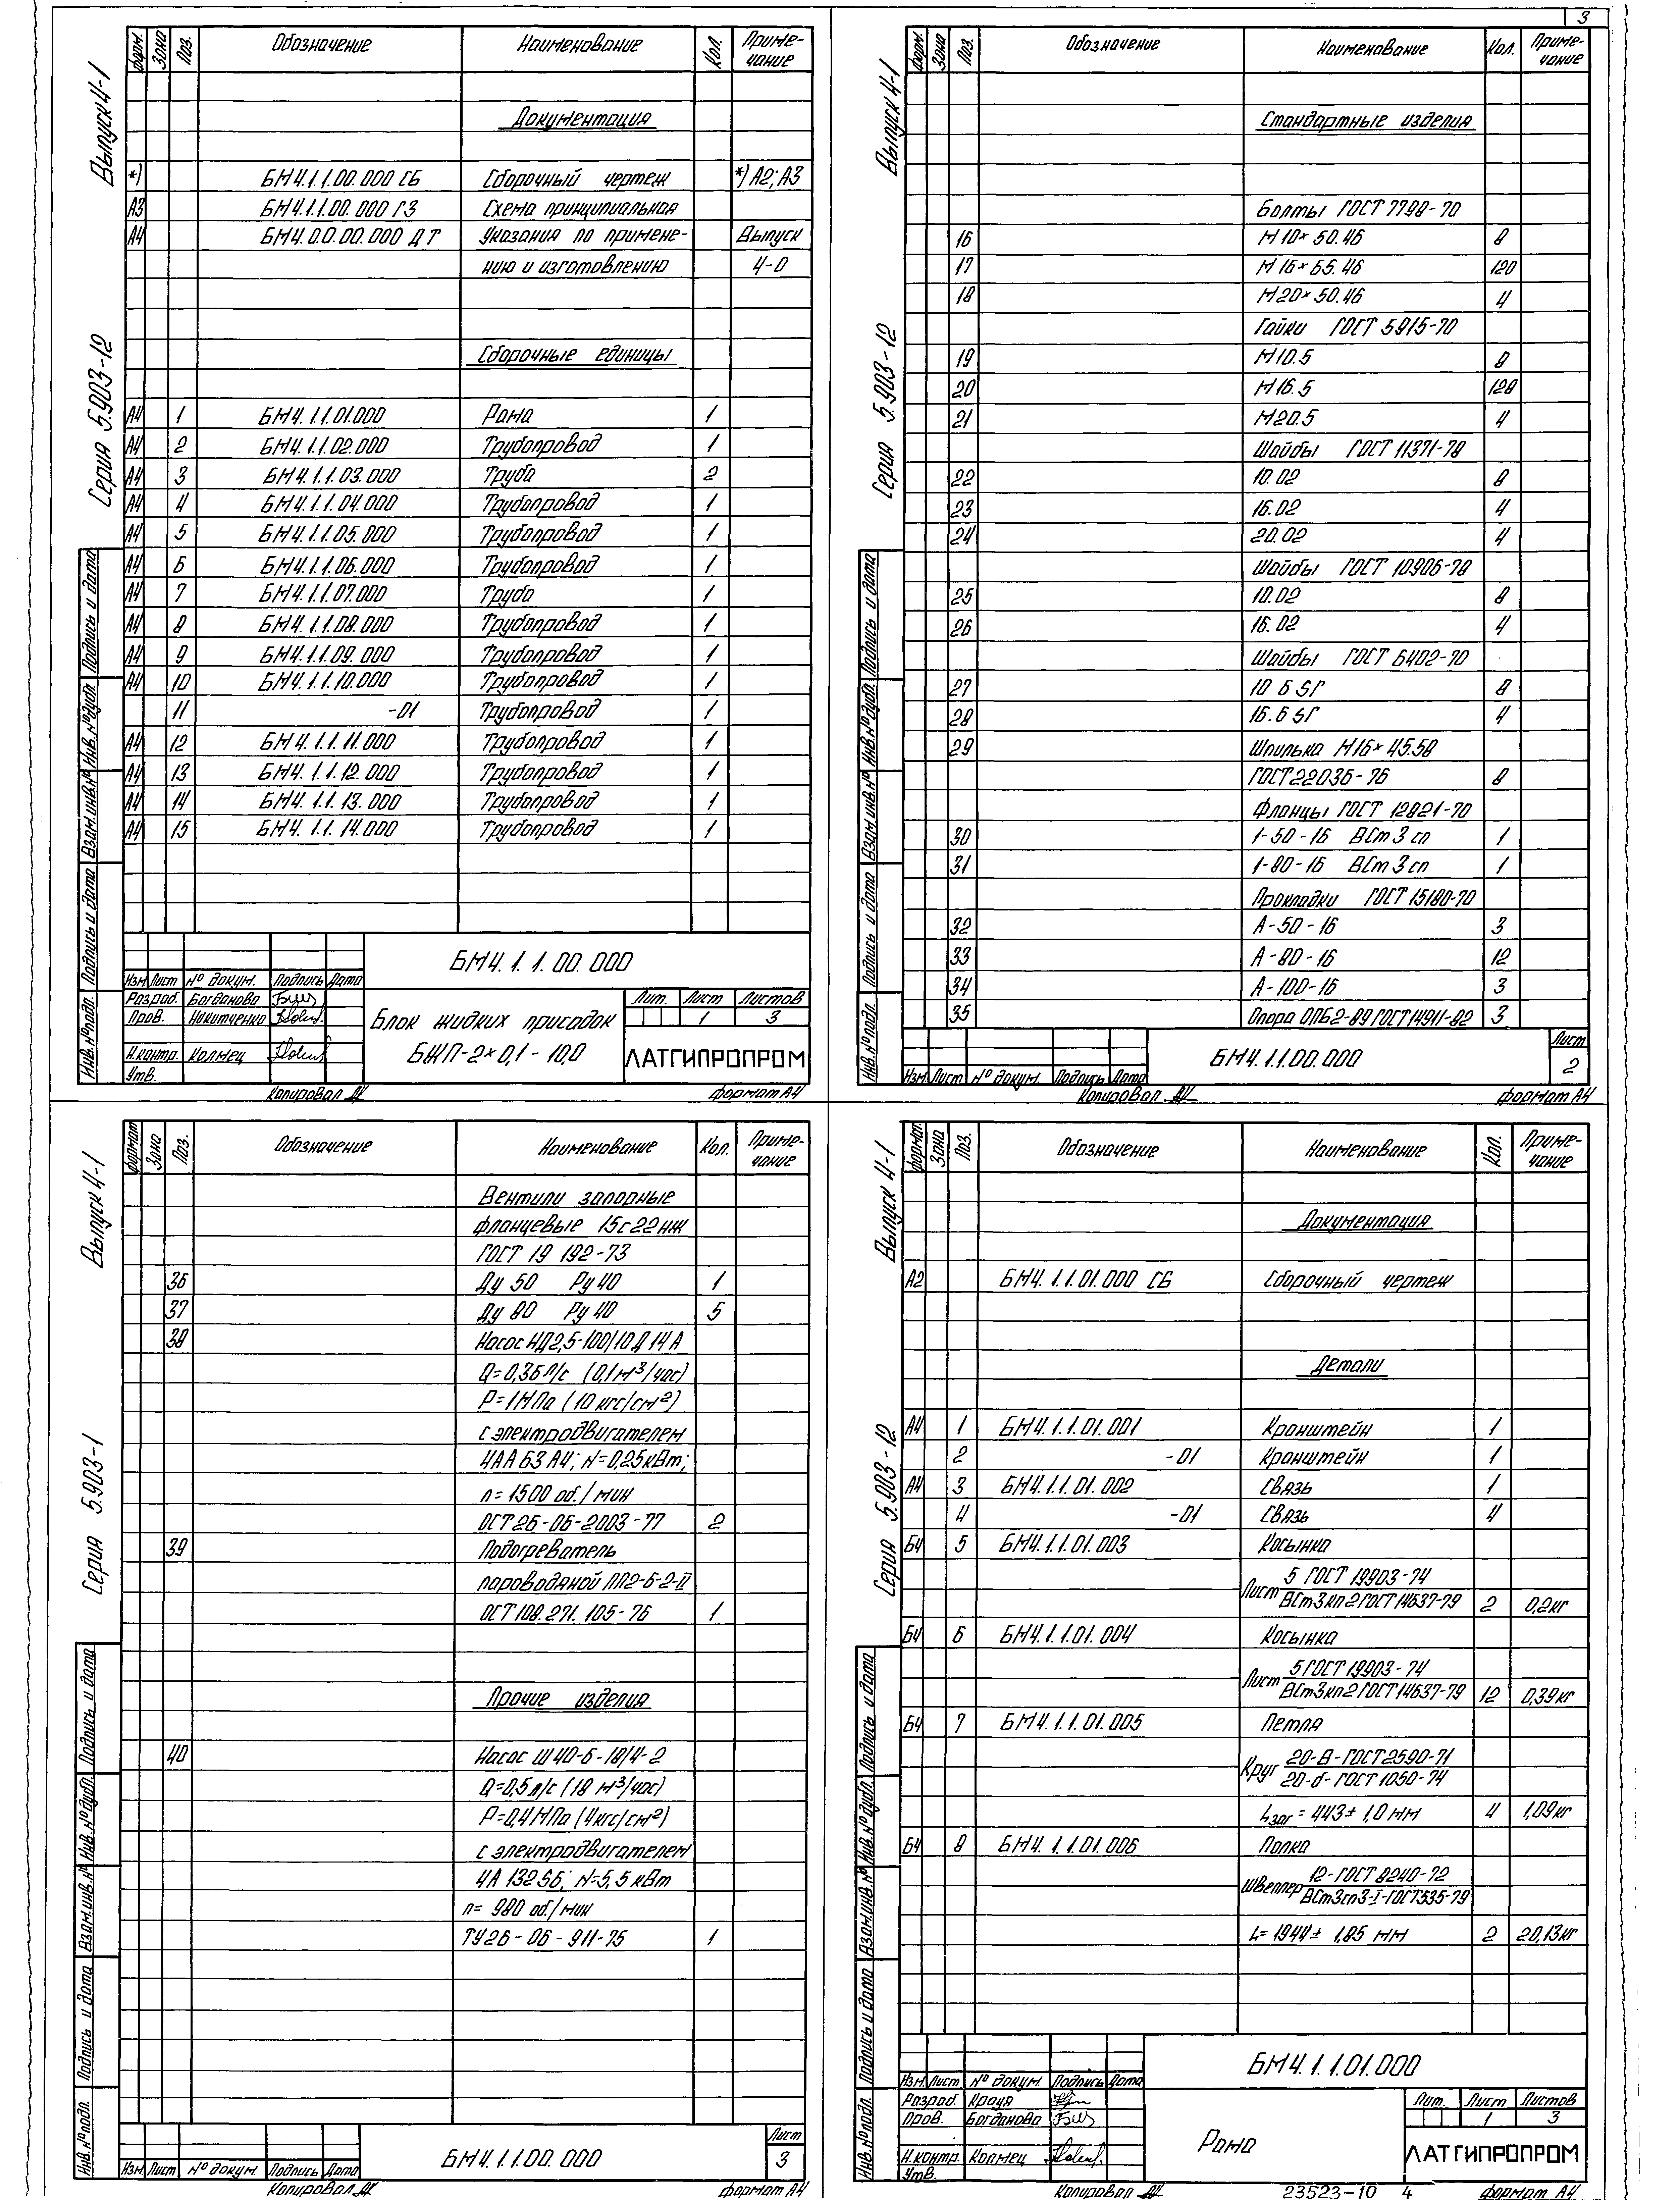 3
Выпуск 4-1
Серия 5.903-12
форм. Зона Поз. Обозначение Наименование Кол. Приме-
чание
Документация
*) БМ4.1.1.00.000 СБ Сборочный чертеж *) А2; А3
А3 БМ4.1.1.00.000 ГЗ Схема принципиальная
А4 БМ4.0.0.00.000 ДТ Указания по примене- Выпуск
нию и изготовлению 4-0
Сборочные единицы
А4 1 БМ4.1.1.01.000 Рама 1
А4 2 БМ4.1.1.02.000 Трубопровод 1
А4 3 БМ4.1.1.03.000 Труба 2
А4 4 БМ4.1.1.04.000 Трубопровод 1
А4 5 БМ4.1.1.05.000 Трубопровод 1
А4 6 БМ4.1.1.06.000 Трубопровод 1
А4 7 БМ4.1.1.07.000 Труба 1
А4 8 БМ4.1.1.08.000 Трубопровод 1
А4 9 БМ4.1.1.09.000 Трубопровод 1
А4 10 БМ4.1.1.10.000 Трубопровод 1
11 -01 Трубопровод 1
А4 12 БМ4.1.1.11.000 Трубопровод 1
А4 13 БМ4.1.1.12.000 Трубопровод 1
А4 14 БМ4.1.1.13.000 Трубопровод 1
А4 15 БМ4.1.1.14.000 Трубопровод 1
Инв.№подл. Подпись и дата Взам.инв.№ Инв.№дубл. Подпись и дата
БМ4.1.1.00.000
Изм Лист № докум. Подпись Дата
Разраб. Богданова
Пров. Никитченко
Н.контр. Колмец
Утв.
Блок жидких присадок
БЖП-2×0,1-10,0
Лит. Лист Листов
1 3
ЛАТГИПРОПРОМ
Копировал формат А4
Выпуск 4-1
Серия 5.903-12
форм. Зона Поз. Обозначение Наименование Кол. Приме-
чание
Стандартные изделия
Болты ГОСТ 7798-70
16 М10×50.46 8
17 М16×65.46 120
18 М20×50.46 4
Гайки ГОСТ 5915-70
19 М10.5 8
20 М16.5 128
21 М20.5 4
Шайбы ГОСТ 11371-78
22 10.02 8
23 16.02 4
24 20.02 4
Шайбы ГОСТ 10906-78
25 10.02 8
26 16.02 4
Шайбы ГОСТ 6402-70
27 10 65Г 8
28 16.65Г 4
29 Шпилька М16×45.58
ГОСТ 22036-76 8
Фланцы ГОСТ 12821-70
30 1-50-16 ВСт3сп 1
31 1-80-16 ВСт3сп 1
Прокладки ГОСТ 15180-70
32 А-50-16 3
33 А-80-16 12
34 А-100-16 3
35 Опора ОПБ2-89 ГОСТ 14911-82 3
Инв.№подл. Подпись и дата Взам.инв.№ Инв.№дубл. Подпись и дата
Изм Лист № докум. Подпись Дата
БМ4.1.1.00.000
Лист
2
Копировал формат А4
Выпуск 4-1
Серия 5.903-1
формат Зона Поз. Обозначение Наименование Кол. Приме-
чание
Вентили запорные
фланцевые 15с22нж
ГОСТ 19 192-73
36 Ду 50 Ру 40 1
37 Ду 80 Ру 40 5
38 Насос НД2,5-100/10 Д 14 А
Q=0,36 л/с (0,1м³/час)
Р=1МПа (10 кгс/см²)
с электродвигателем
4АА63А4; N=0,25кВт;
n=1500 об./мин
ОСТ 26-06-2003-77 2
39 Подогреватель
пароводяной ПП2-6-2-II
ОСТ 108.271.105-76 1
Прочие изделия
40 Насос Ш 40-6-18/4-2
Q=0,5л/с (18 м³/час)
Р=0,4МПа (4кгс/см²)
с электродвигателем
4А 132S6; N=5,5 кВт
n= 980 об/мин
ТУ26-06-911-75 1
Инв.№подл. Подпись и дата Взам.инв.№ Инв.№дубл. Подпись и дата
Изм. Лист № докум. Подпись Дата
БМ4.1.1.00.000
Лист
3
Копировал формат А4
Выпуск 4-1
Серия 5.903-12
формат Зона Поз. Обозначение Наименование Кол. Приме-
чание
Документация
А2 БМ4.1.1.01.000 СБ Сборочный чертеж
Детали
А4 1 БМ4.1.1.01.001 Кронштейн 1
2 -01 Кронштейн 1
А4 3 БМ4.1.1.01.002 Связь 1
4 -01 Связь 4
Б4 5 БМ4.1.1.01.003 Косынка
5 ГОСТ 19903-74
Лист ВСт3кп2 ГОСТ 14637-79 2 0,2кг
Б4 6 БМ4.1.1.01.004 Косынка
5 ГОСТ 19903-74
Лист ВСт3кп2 ГОСТ 14637-79 12 0,39кг
Б4 7 БМ4.1.1.01.005 Петля
20-В-ГОСТ 2590-71
Круг 20-б-ГОСТ 1050-74
Lзаг = 443± 1,0 мм 4 1,09кг
Б4 8 БМ4.1.1.01.006 Полка
12-ГОСТ 8240-72
Швеллер ВСт3сп3-I-ГОСТ535-79
L= 1944± 1,85 мм 2 20,13кг
Инв.№подл. Подпись и дата Взам.инв.№ Инв.№дубл. Подпись и дата
БМ4.1.1.01.000
Изм. Лист № докум. Подпись Дата
Разраб. Крауя
Пров. Богданова
Н.контр. Колмец
Утв.
Рама
Лит. Лист Листов
1 3
ЛАТГИПРОПРОМ
Копировал 23523-10 4 формат А4